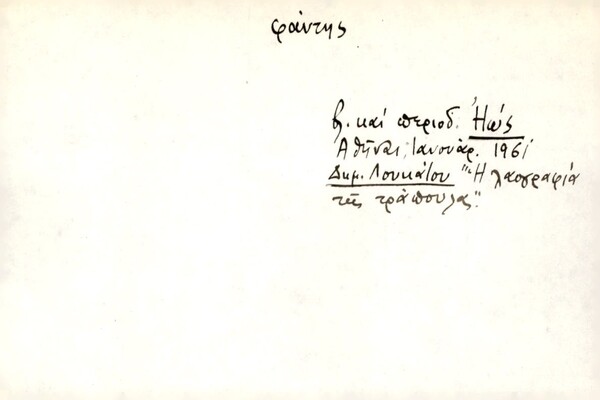 φάντης
βλ. καί περιοδ. Ἠώς
Ἀθῆναι, Ἰανουάρ. 1961
Δημ. Λουκάτου "Ἡ λαογραφία
τῆς τράπουλας".